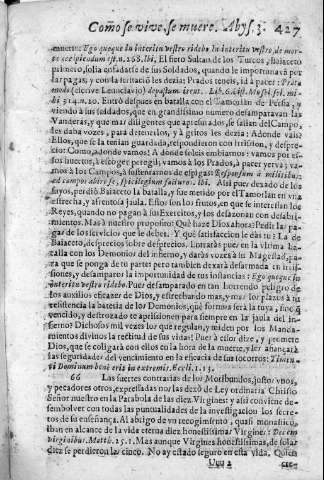 Como se vive, se muere. Abys. 3. 427
emetu: Ego quoque in interitu vestro ridebo. In interitu vestro, de mor-
El fiero Sultan de los Turcos, Baiaceto
primero, solia enfadarse de sus Soldados, quando le importunavã por
las pagas; y con la irritacion les dezia: Prados teneis, id à pacer:
Entrò despues en batalla con el Tamorlan de Persia, y
viendo à sus soldados, que en grandissimo numero desamparavan las
Vanderas, y que mas diligentes que apriesa ados, se salian del Campo,
les daba vozes, para detenerlos, y à gritos les dezia: Adonde vais?
Ellos, que se la tenian guardada, respondieron con irrision, y despre-
cio: Como, adonde vamos? A donde soleis embiarnos: vamos por es-
sos huertos, à escoger peregil; vamos à los Prados, à pacer yerva; va-
mos à los Campos, à sustentarnos de espigas: Responsum à militibus:
Assi pues dexado de los
suyos, perdiò Baiaceto la batalla, y fue metido por el Tamorlan en vna
estrecha, y afrentosa jaula. Estos son los frutos, en que se interessan los
Reyes, quando no pagan à sus Exercitos, y los desazonan con desabri-
mientos. Mas à nuestro proposito: Què haze Dios ahora? Pedir la pa-
ga de los servicios que le debes. Y què satisfaccion le dàs tu? La de
Baiaceto, desprecios sobre desprecios. Entraràs pues en la vltima ba-
talla con los Demonios del infierno, y daràs vozes à su Magestad, pa-
ra que se ponga de tu parte; pero tambien dexarà desarmada en irrisi-
ones, y desamparo la importunidad de tus instancias: Ego quoque in
interitu vestro ridebo. Pues desamparado en tan horrendo peligro de
los auxilios eficazes de Dios, y estrechando mas, y mas los plazos à tu
resistencia la bateria de los Demonios, què menos serà la tuya, sino
vencido, y destrozado te aprisionen para siempre en la jaula del In-
fierno? Dichosos mil vezes los que regulan, y miden por los Manda-
mientos divinos la rectitud de sus vidas: Pues à estos dize, y promete
Dios, que se coligarà con ellos en la hora de la muerte, y les afiançarà
las seguridades del vencimiento en la eficacia de sus socorros: Timen-
ti Dominum benè erit in extremis. Eccli. 1. 13.
66 Las suertes contrarias de los Moribundos, justos vnos,
y pecadores otros, expressadas nos las dexò de Ley ordinaria Christo
Señor nuestro en la Parabola de las diez Virgines: y assi conviene de-
sembolver con todas las puntualidades de la investigacion los secre-
tos de su enseñança. Al abrigo de vn recogimiento, quasi monastico,
iban al alcance de la vida eterna diez honestissimas Virgines: Decem
virginibus. Matth. 25. 1. Mas aunque Virgines honestissimas, de solas
diez se perdieron las cinco. No ay estado seguro en esta vida. Quien
Uuu 2